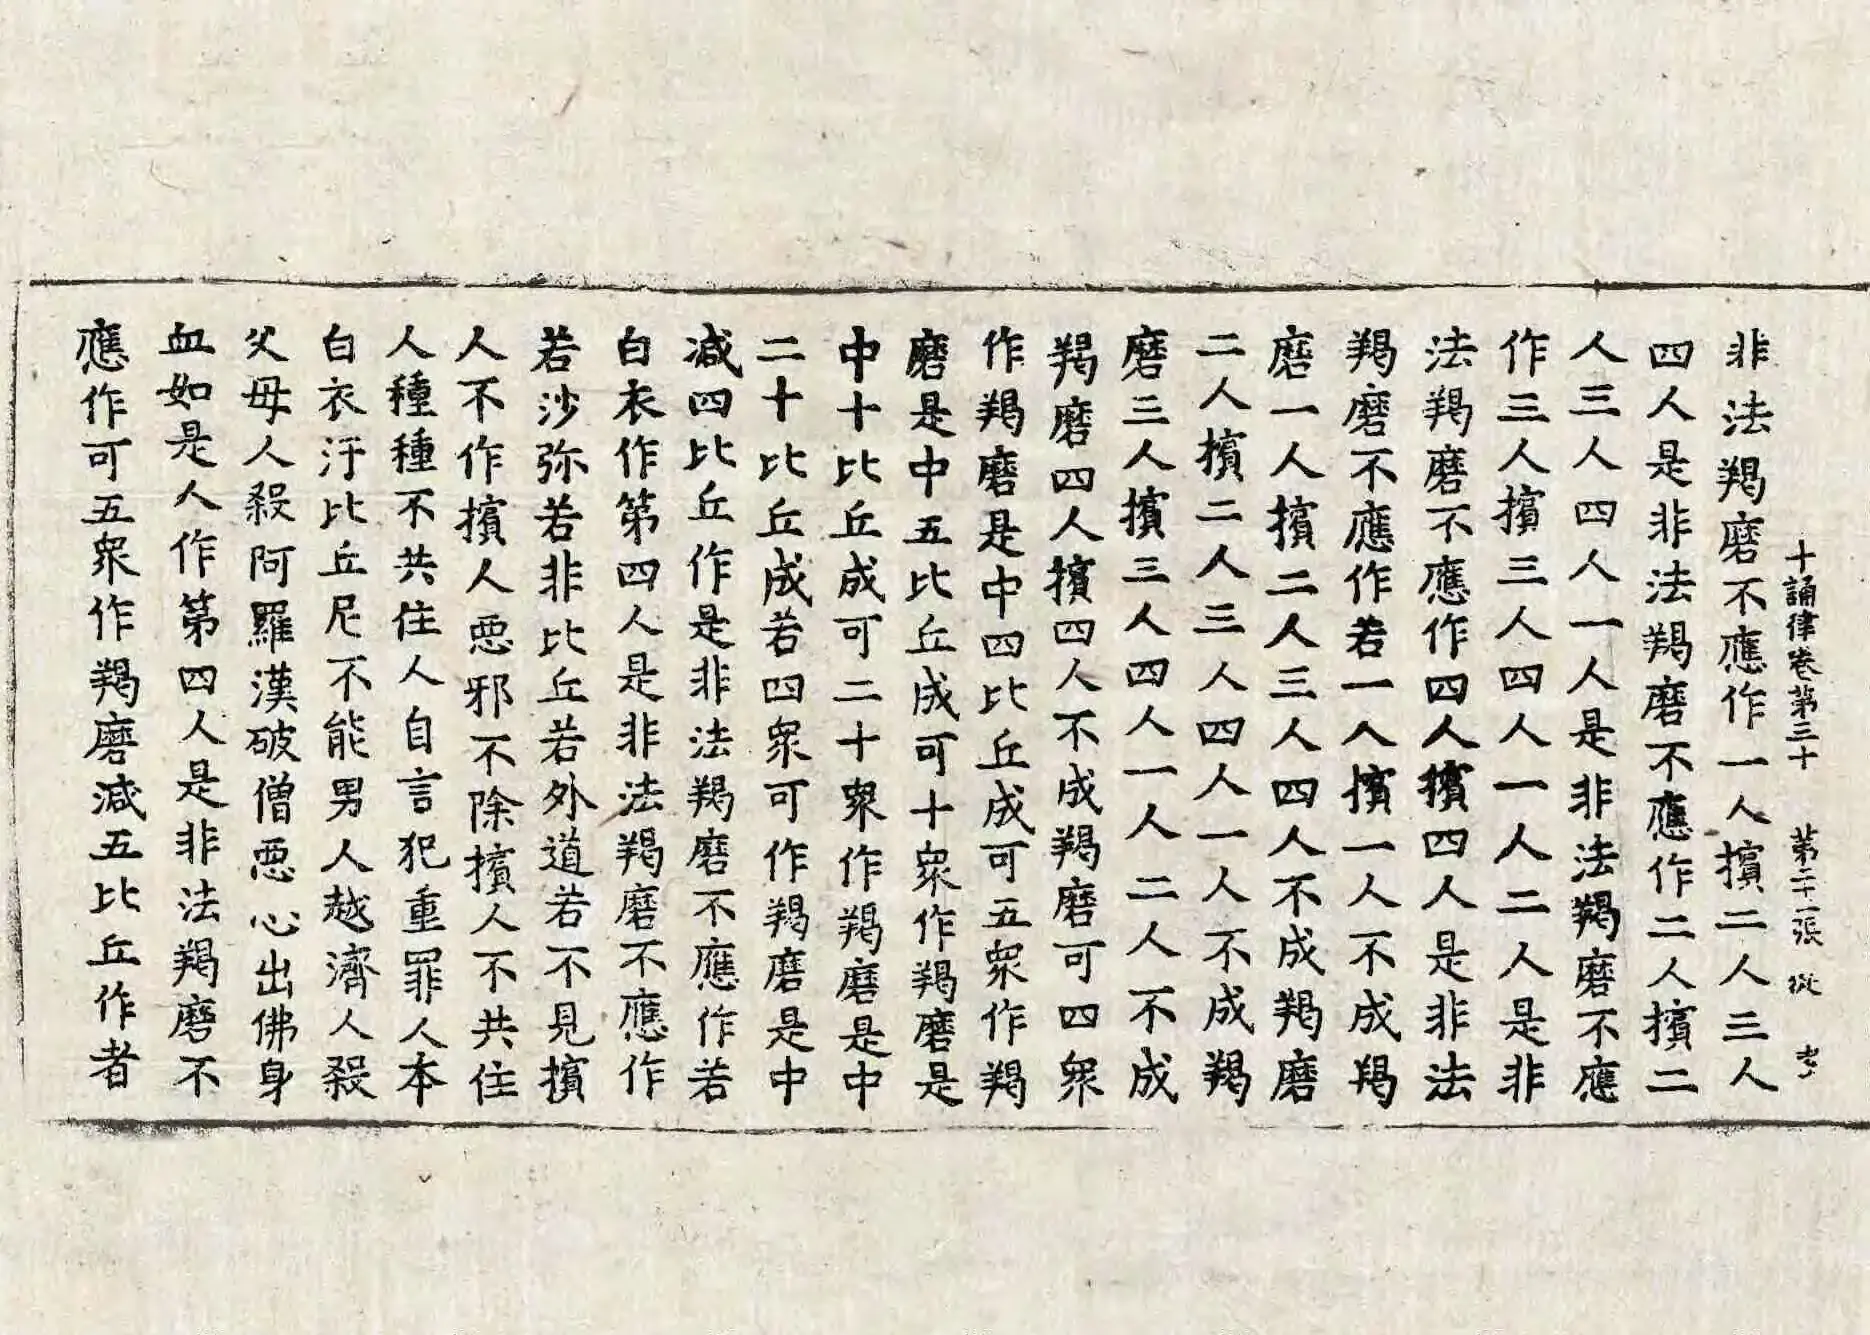 十誦律卷第三十 第二十一張 從
非法羯磨不應作一人擯二人三人
四人是非法羯磨不應作二人擯二
人三人四人一人是非法羯磨不應
作三人擯三人四人一人二人是非
法羯磨不應作四人擯四人是非法
羯磨不應作若一人擯一人不成羯
磨一人擯二人三人四人不成羯磨
二人擯二人三人四人一人不成羯
磨三人擯三人四人一人二人不成
羯磨四人擯四人不成羯磨可四衆
作羯磨是中四比丘成可五衆作羯
磨是中五比丘成可十衆作羯磨是
中十比丘成可二十衆作羯磨是中
二十比丘成若四衆可作羯磨是中
減四比丘作是非法羯磨不應作若
白衣作第四人是非法羯磨不應作
若沙弥若非比丘若外道若不見擯
人不作擯人惡邪不除擯人不共住
人種種不共住人自言犯重罪人本
白衣汙比丘尼不能男人越濟人殺
父母人殺阿羅漢破僧惡心出佛身
血如是人作第四人是非法羯磨不
應作可五衆作羯磨減五比丘作者